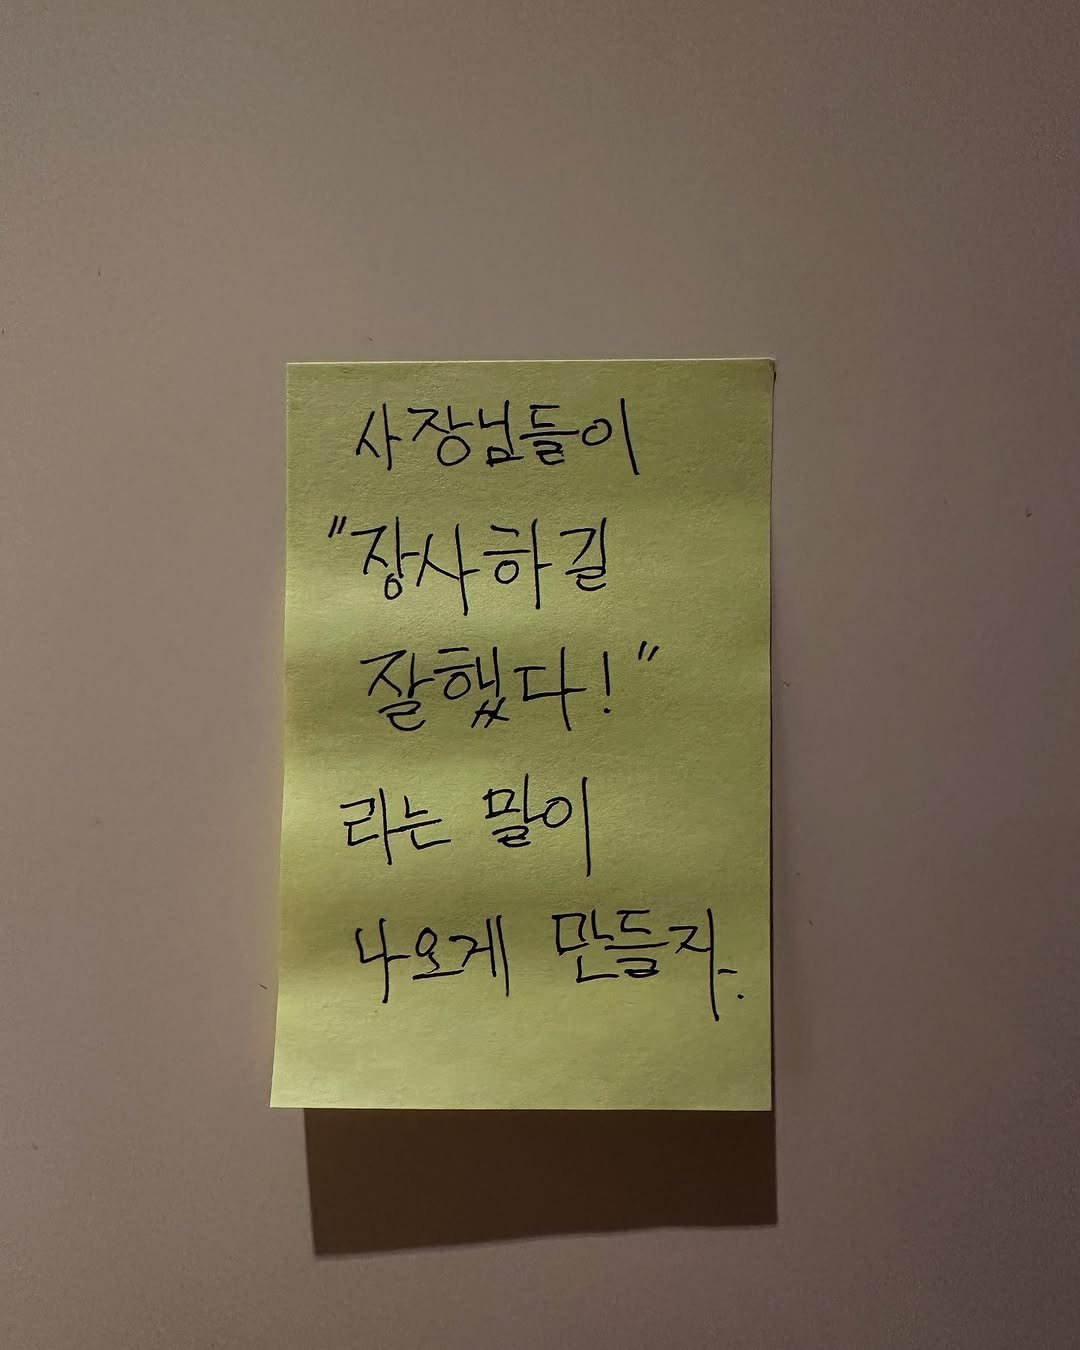 사장님들이
"장사하길
잘했다!"
라는 말이
나오게 만들자.